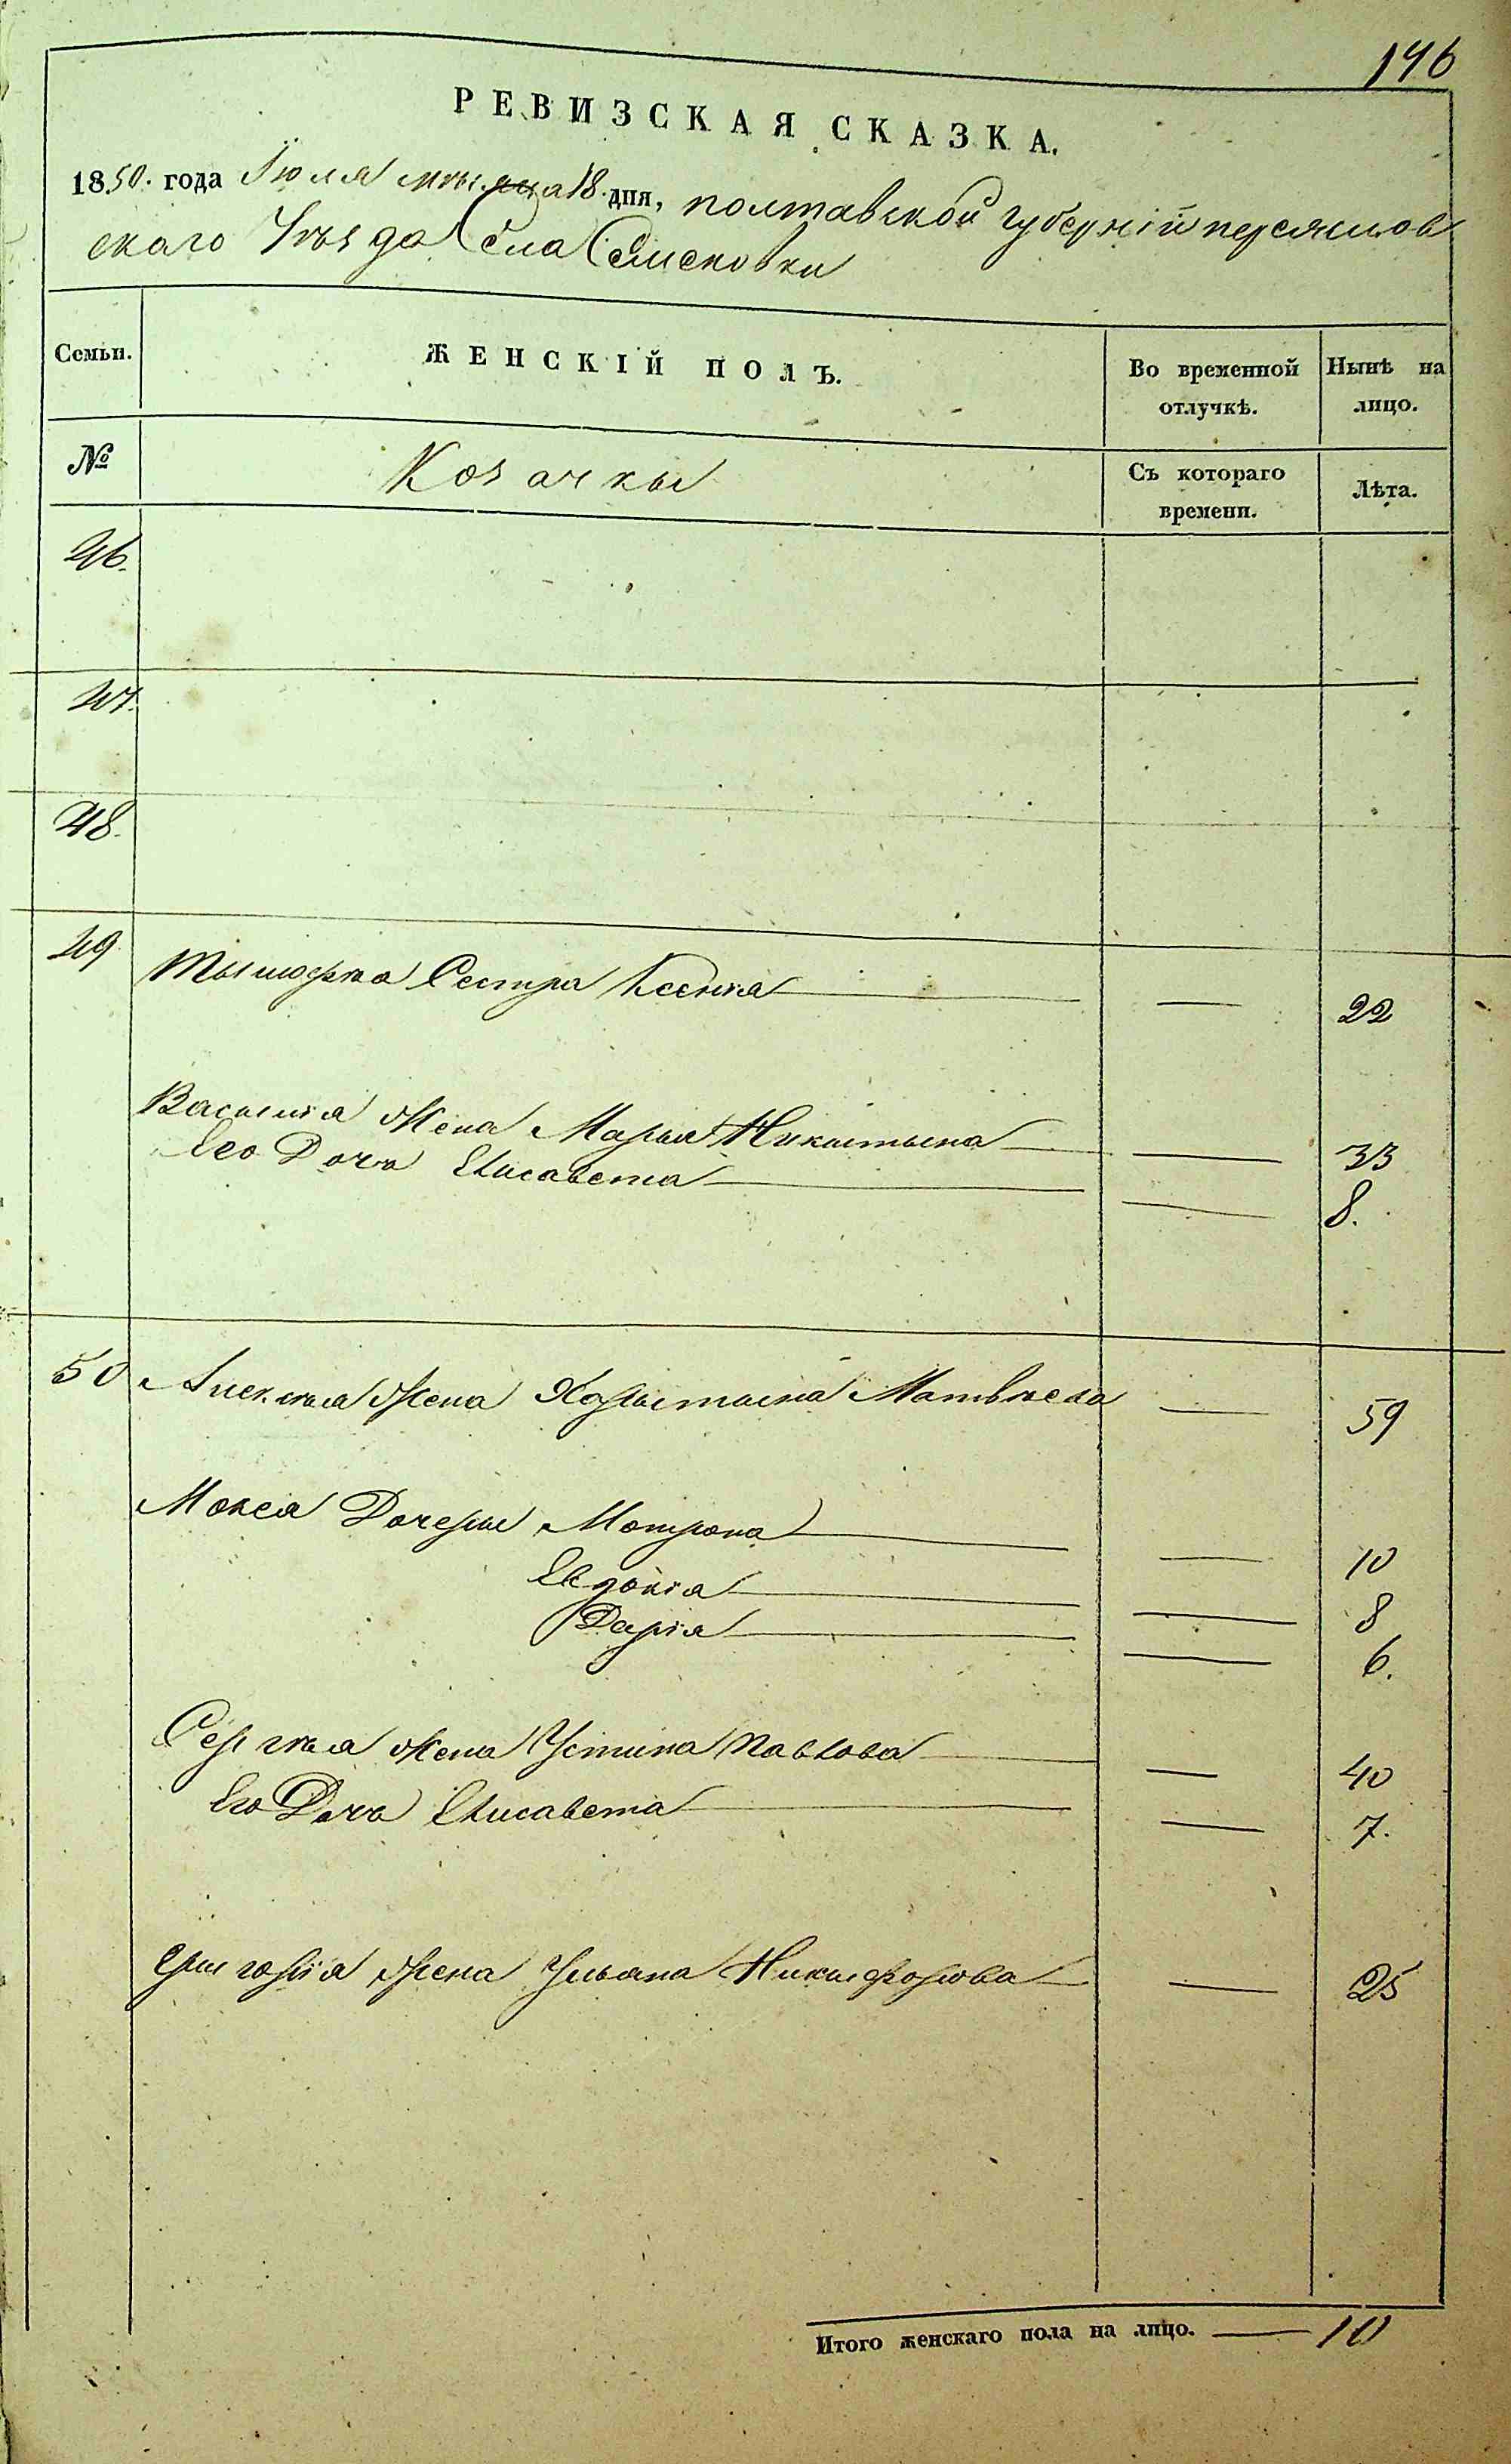 146
РЕВИЗСКАЯ СКАЗКА.
1850. года Июля мѣсяца 18. дня, полтавской губерніи переяслов
скаго уѣзда села Семеновки
Семьи. ЖЕНСКІЙ ПОЛЪ. Во временной отлучкѣ. Нынѣ на лицо.
№ Козачкы Съ котораго времени. Лѣта.
46.
47.
48.
49 Тымофѣа Сестра Ксенія — 22
Василія Жена Марья Никитына — 33
Его Дочь Елисавета — 8.
50 Алексѣя Жена Харытына Матвѣева — 59
Мокея Дочеры Мотрона — 10
Евдокія — 8
Дарія — 6.
Сергѣя Жена Устина Павлова — 40
Его Дочь Елисавета — 7.
Григорія Жена Ульяна Никифорова — 25
Итого женскаго пола на лицо. — 10